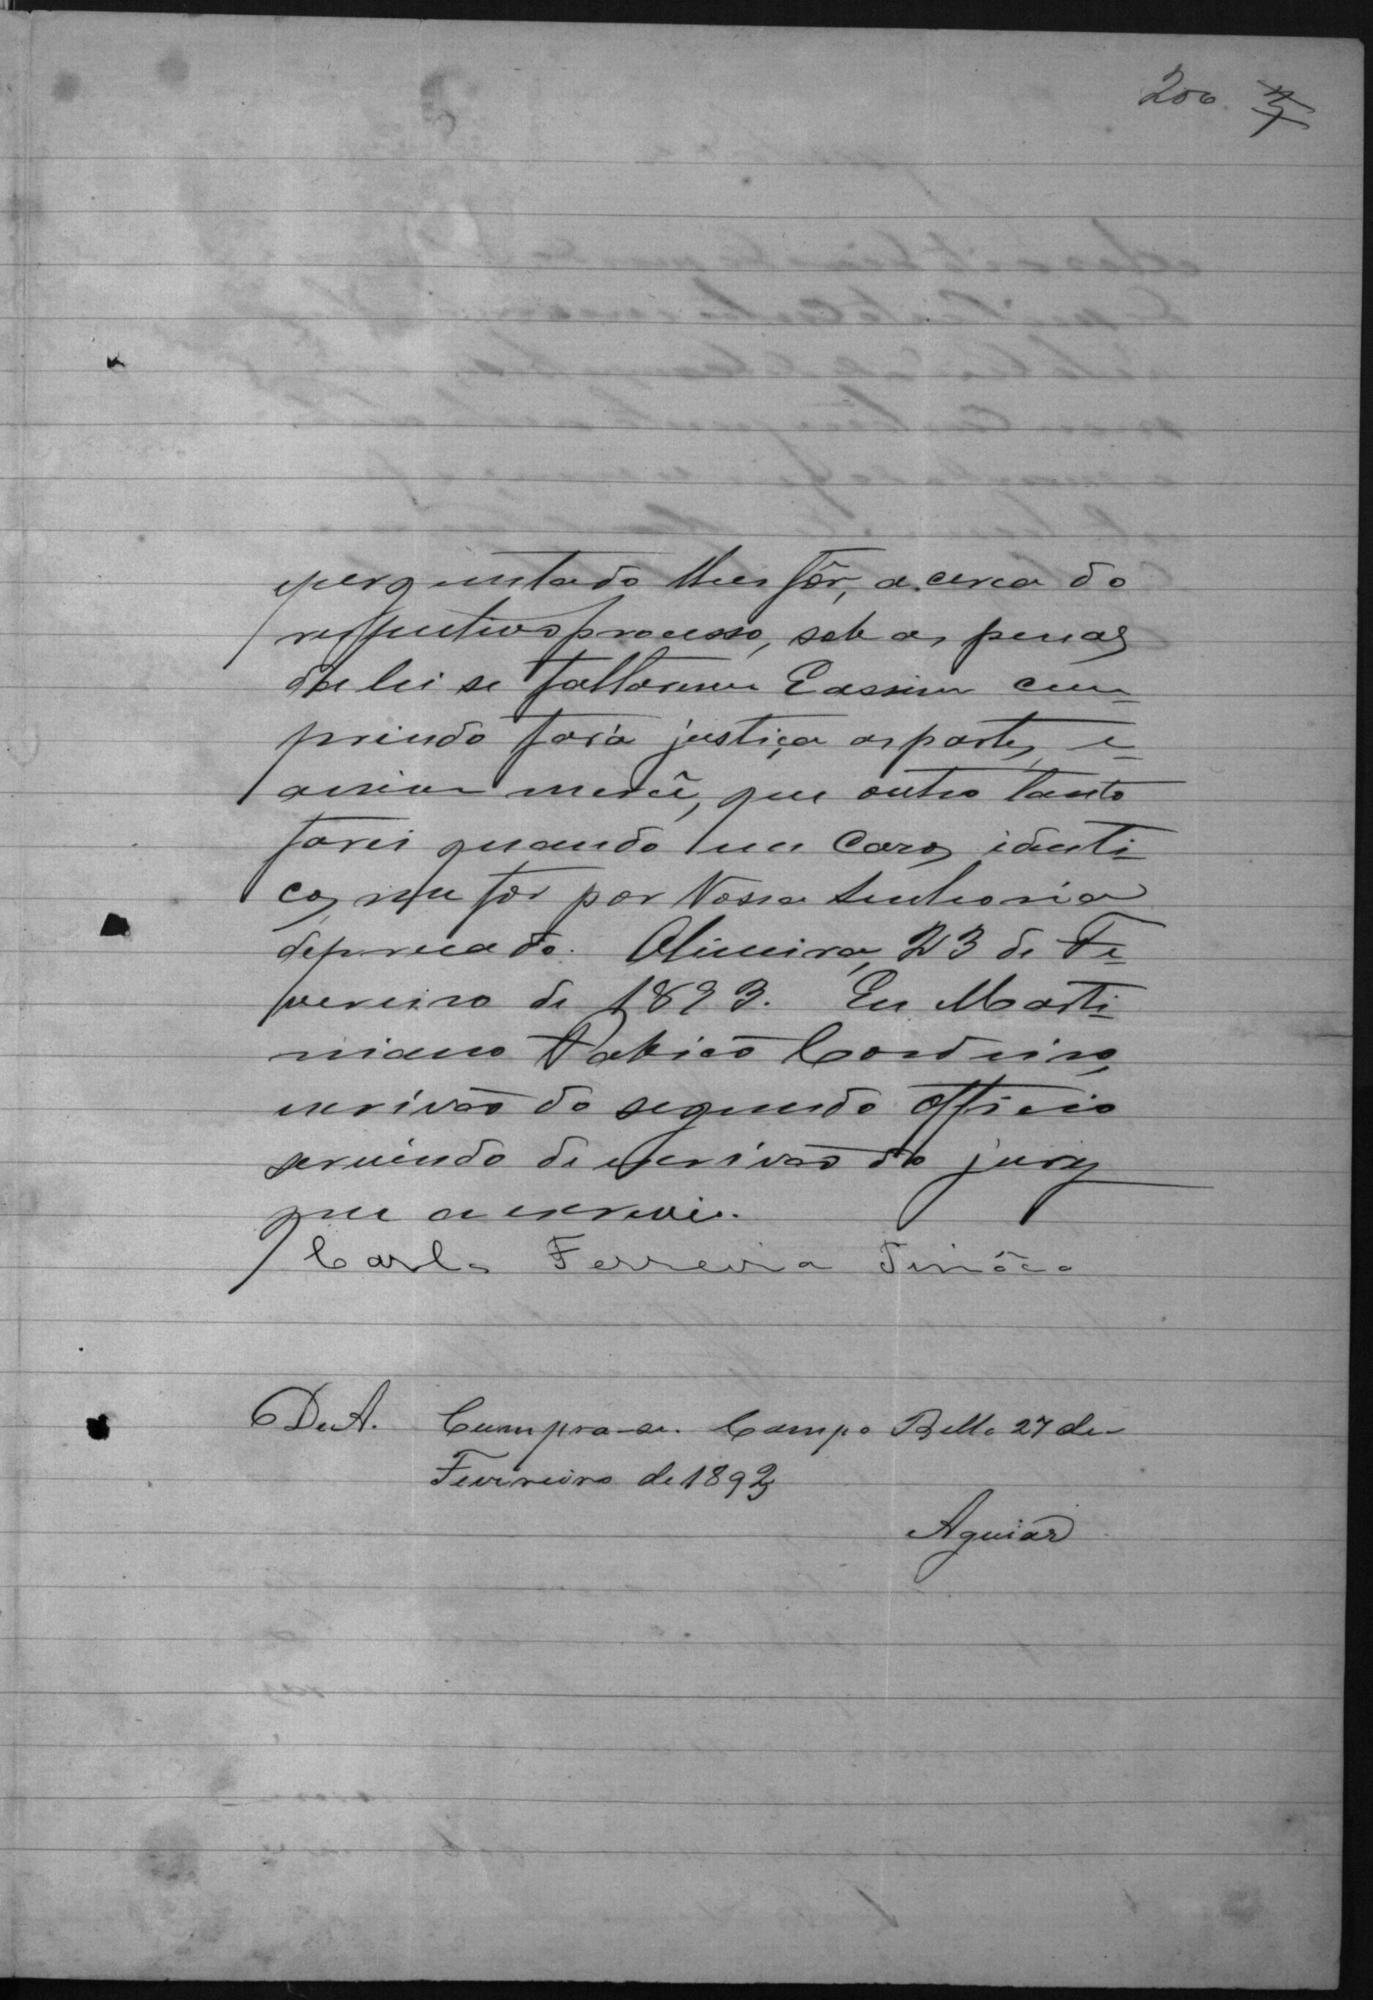 200
perguntado lhes fôr, acerca do
respectivo processo, sob as penas
da lei se faltarem E assim cum-
prindo fará justiça as partes, e
a mim mercê, que outro tanto
farei quando em casos identi-
cos me fôr por Vossa Senhoria
deprecado. Oliveira, 23 de Fe-
vereiro de 1893. Eu Marti-
niano Patricio Cordeiro,
escrivão do segundo officio
servindo de escrivão do jury
que a escrevi.
Carlos Ferreira Tinôco
D. e A. Cumpra-se. Campo Bello 27 de
Fevereiro de 1893
Aguiar